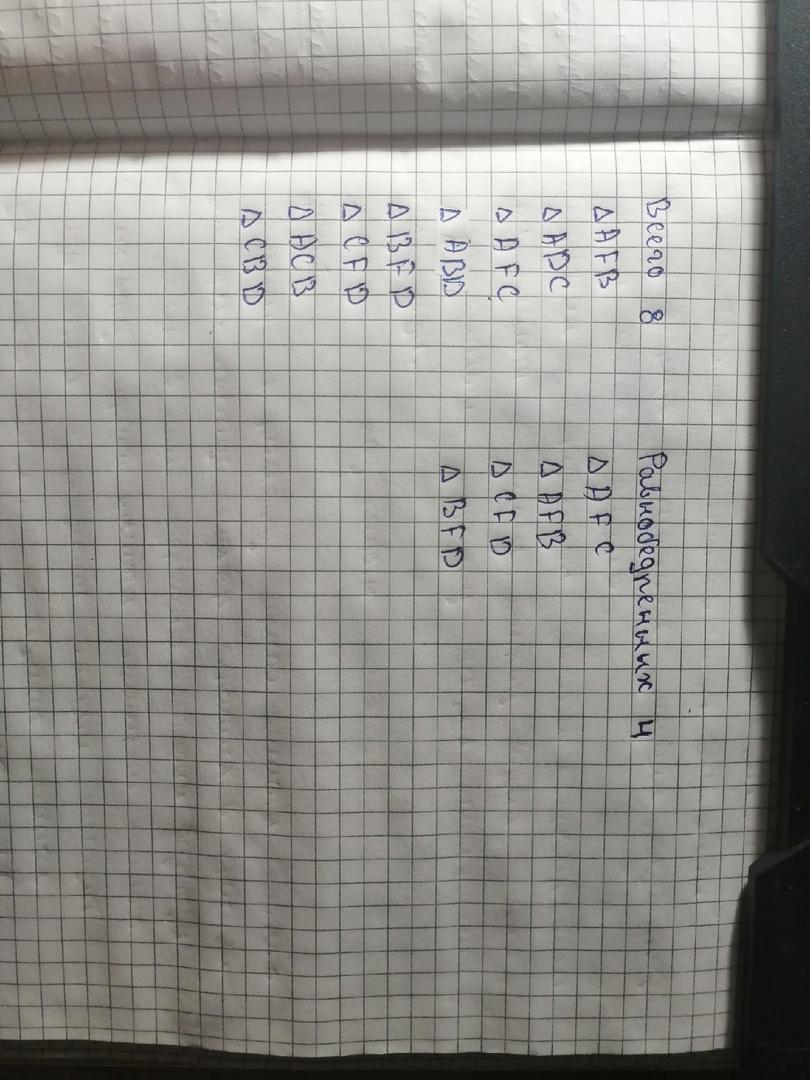 Всего 8
Δ AFB
Δ ADC
Δ AFC
Δ ABD
Δ BFD
Δ CFD
Δ ACB
Δ CBD
Равнобедренных 4
Δ AFC
Δ AFB
Δ CFD
Δ BFD